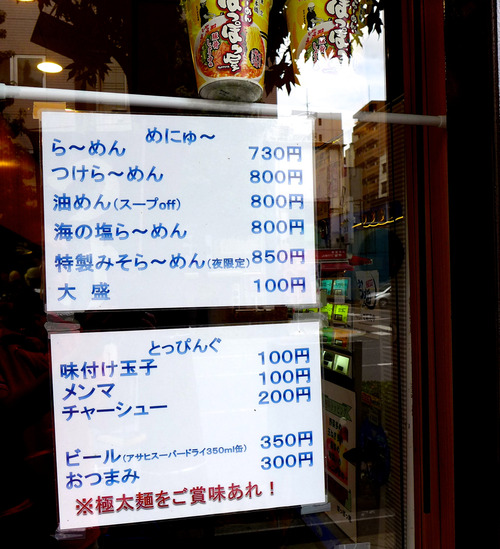 ぽっぽっ屋
めにゅ～
ら～めん 730円
つけら～めん 800円
油めん(スープoff) 800円
海の塩ら～めん 800円
特製みそら～めん(夜限定) 850円
大　盛 100円
とっぴんぐ
味付け玉子 100円
メンマ 100円
チャーシュー 200円
ビール(アサヒスーパードライ350ml缶) 350円
おつまみ 300円
※極太麺をご賞味あれ！